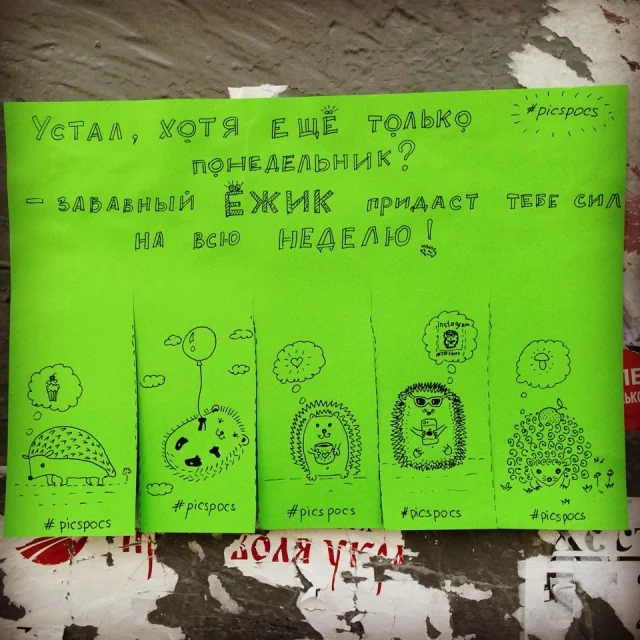 #picspocs
УСТАЛ, ХОТЯ ЕЩЁ ТОЛЬКО
ПОНЕДЕЛЬНИК?
- ЗАБАВНЫЙ ЁЖИК ПРИДАСТ ТЕБЕ СИЛ
НА ВСЮ НЕДЕЛЮ!
Instagram
#picspocs
#picspocs
#picspocs
#picspocs
#picspocs